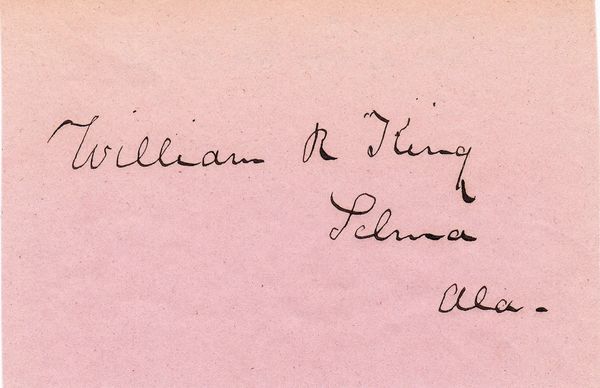 William R King
Selma
Ala-